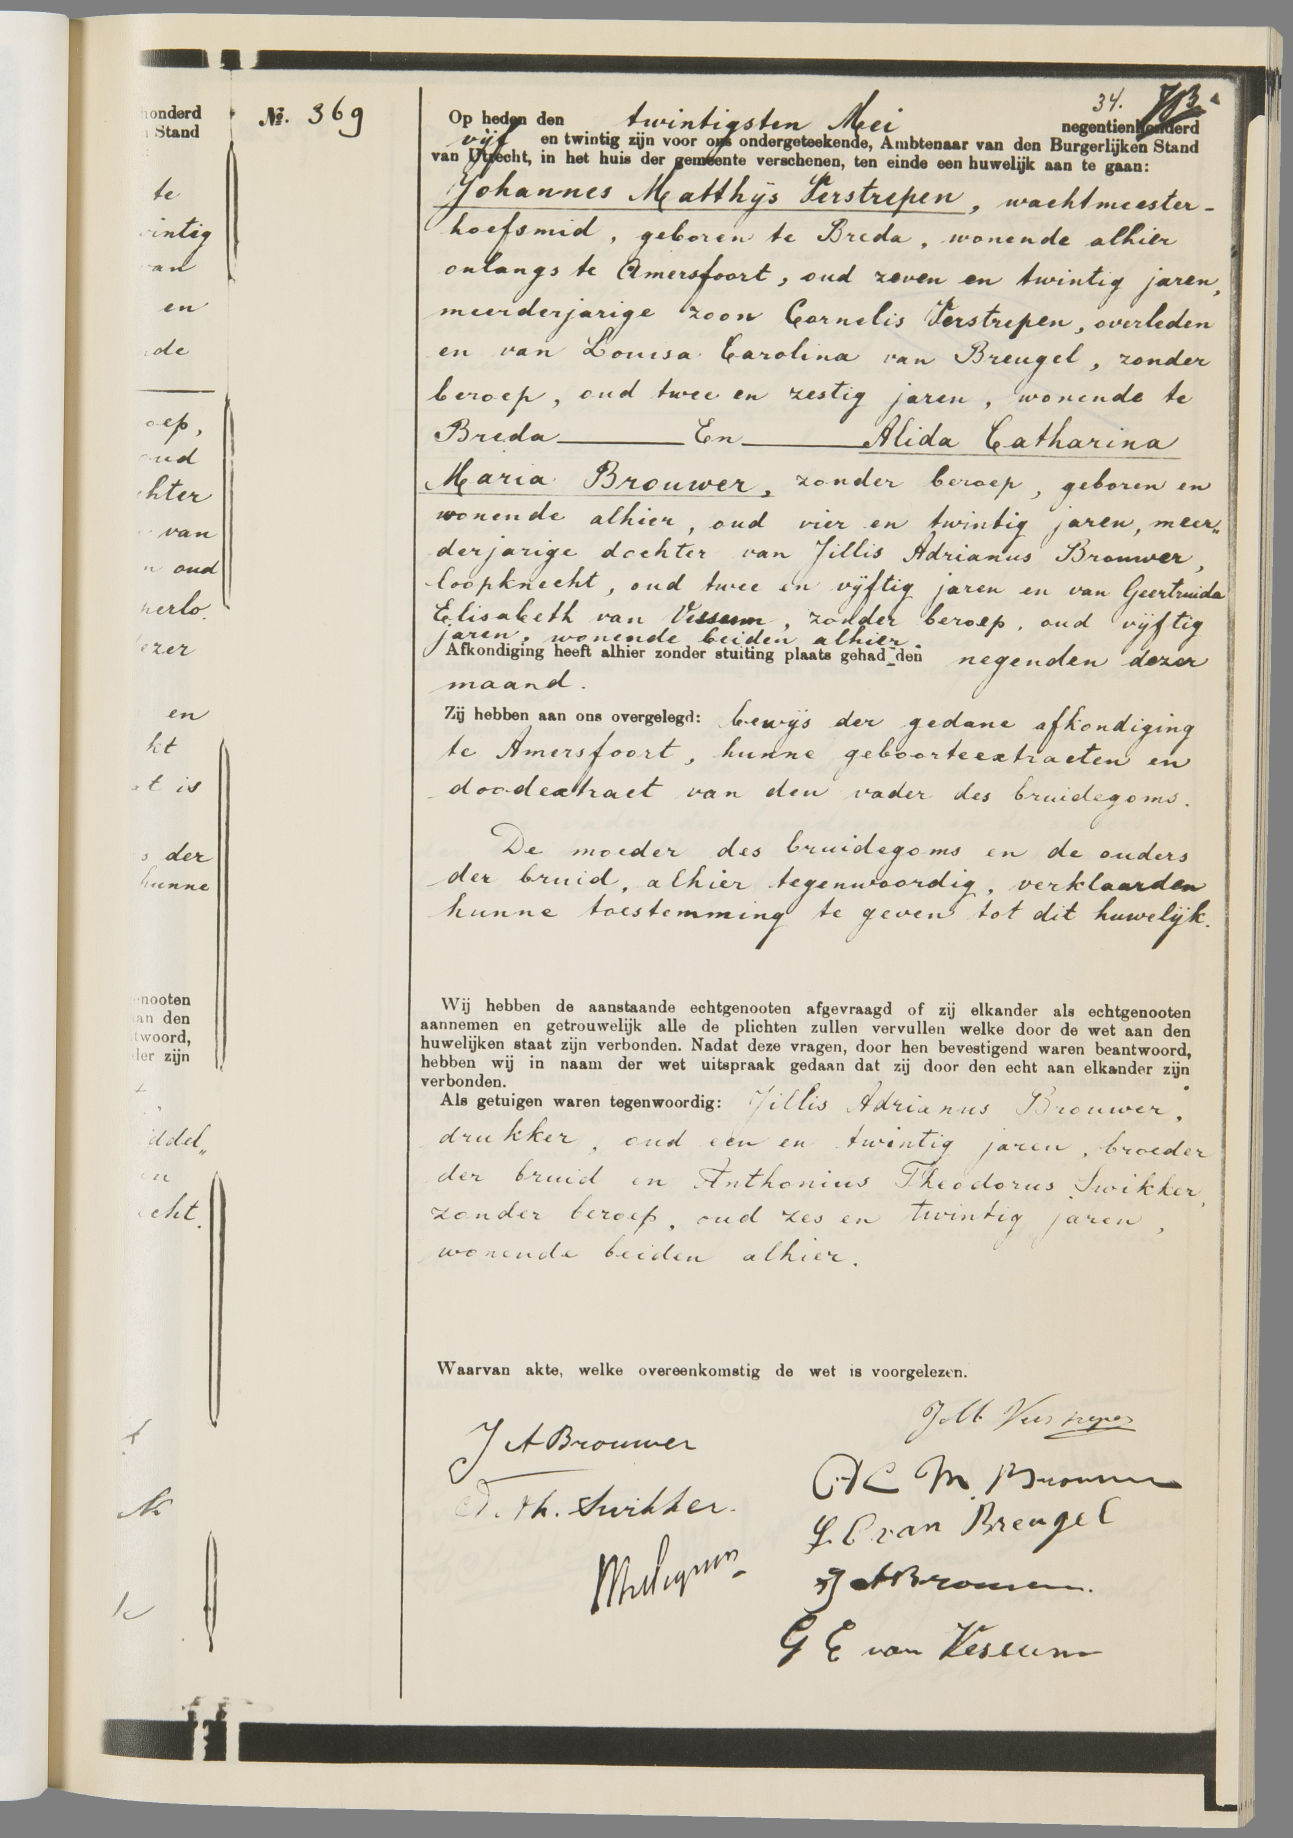 34.
№. 369
Op heden den twintigsten Mei negentienhonderd
vijf en twintig zijn voor ons ondergeteekende, Ambtenaar van den Burgerlijken Stand
van Utrecht, in het huis der gemeente verschenen, ten einde een huwelijk aan te gaan:
Johannes Matthijs Verstrepen, wachtmeester-
hoefsmid, geboren te Breda, wonende alhier
onlangs te Amersfoort, oud zeven en twintig jaren,
meerderjarige zoon Cornelis Verstrepen, overleden
en van Louisa Carolina van Breugel, zonder
beroep, oud twee en zestig jaren, wonende te
Breda En Alida Catharina
Maria Brouwer, zonder beroep, geboren en
wonende alhier, oud vier en twintig jaren, meer„
derjarige dochter van Jillis Adrianus Brouwer,
loopknecht, oud twee en vijftig jaren en van Geertruida
Elisabeth van Vessum, zonder beroep, oud vijftig
jaren, wonende beiden alhier.
Afkondiging heeft alhier zonder stuiting plaats gehad den negenden dezer
maand.
Zij hebben aan ons overgelegd: bewijs der gedane afkondiging
te Amersfoort, hunne geboorteextracten en
doodextract van den vader des bruidegoms.
De moeder des bruidegoms en de ouders
der bruid, alhier tegenwoordig, verklaarden
hunne toestemming te geven tot dit huwelijk.
Wij hebben de aanstaande echtgenooten afgevraagd of zij elkander als echtgenooten
aannemen en getrouwelijk alle de plichten zullen vervullen welke door de wet aan den
huwelijken staat zijn verbonden. Nadat deze vragen, door hen bevestigend waren beantwoord,
hebben wij in naam der wet uitspraak gedaan dat zij door den echt aan elkander zijn
verbonden.
Als getuigen waren tegenwoordig: Jillis Adrianus Brouwer,
drukker, oud een en twintig jaren, broeder
der bruid en Anthonius Theodorus Swikker,
zonder beroep, oud zes en twintig jaren,
wonende beiden alhier.
Waarvan akte, welke overeenkomstig de wet is voorgelezen.
J M Verstrepen
J A Brouwer
A C M. Brouwer
A. Th. Swikker.
L. C van Breugel
J A Brouwer.
G E van Vessum
honderd
Stand
te
intig
van
en
de
oep,
oud
hter
van
oud
nerlo.
ezer
en
kt
t is
s der
hunne
nooten
an den
twoord,
der zijn
iddel„
en
echt.